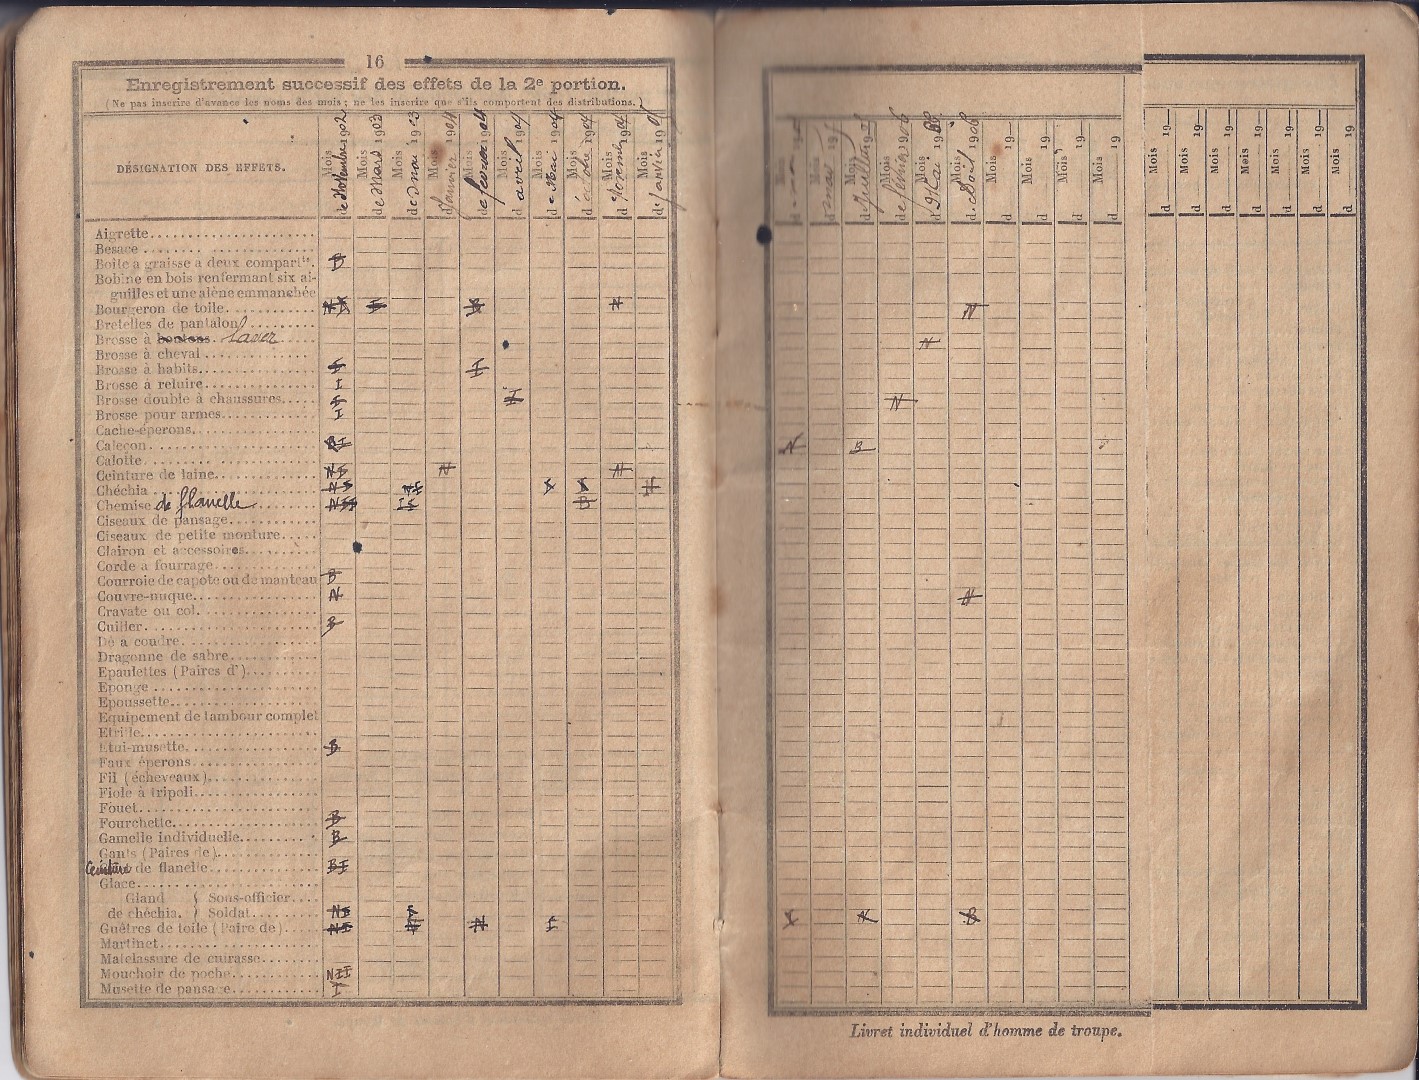 16
Enregistrement successif des effets de la 2e portion.
(Ne pas inscrire d'avance les noms des mois ; ne les inscrire que s'ils comportent des distributions.)
DÉSIGNATION DES EFFETS.
Mois de Novembre 1902
Mois de Mars 1903
Mois de 1903
Mois d Janvier 1904
Mois de février 1904
Mois d avril 1904
Mois d Mai 1904
Mois d' octobre 1904
Mois d Novemb 1904
Mois d' janvier 19
Mois d Juillet 19
Mois de février 1906
Mois d Mai 19
Mois d Août 1906
Mois d 19
Mois d 19
Mois d 19
Mois d 19
Mois d 19
Mois d 19
Mois d 19
Mois d 19
Mois d 19
Mois d 19
Mois d 19
Aigrette
Besace
Boite a graisse a deux compartts. B
Bobine en bois renfermant six ai-
guilles et une alène emmanchée
Bourgeron de toile N
Bretelles de pantalon
Brosse à boutons laver N
Brosse à cheval
Brosse à habits
Brosse à reluire I
Brosse double à chaussures N
Brosse pour armes I
Cache-éperons
Caleçon BI N B
Calotte
Ceinture de laine N N
Chéchia
Chemise de flanelle
Ciseaux de pansage
Ciseaux de petite monture
Clairon et accessoires
Corde a fourrage
Courroie de capote ou de manteau B
Couvre-nuque N N
Cravate ou col
Cuiller B
Dé a coudre
Dragonne de sabre
Epaulettes (Paires d')
Eponge
Epoussette
Equipement de tambour complet
Etrille
Etui-musette B
Faux éperons
Fil (écheveaux)
Fiole à tripoli
Fouet
Fourchette B
Gamelle individuelle B
Gants (Paires de)
Ceinture de flanelle BI
Glace
Gland de chéchia. { Sous-officier
Soldat N B
Guêtres de toile (Paire de) N I
Martinet
Matelassure de cuirasse
Mouchoir de poche NII
Musette de pansage I
Livret individuel d'homme de troupe.